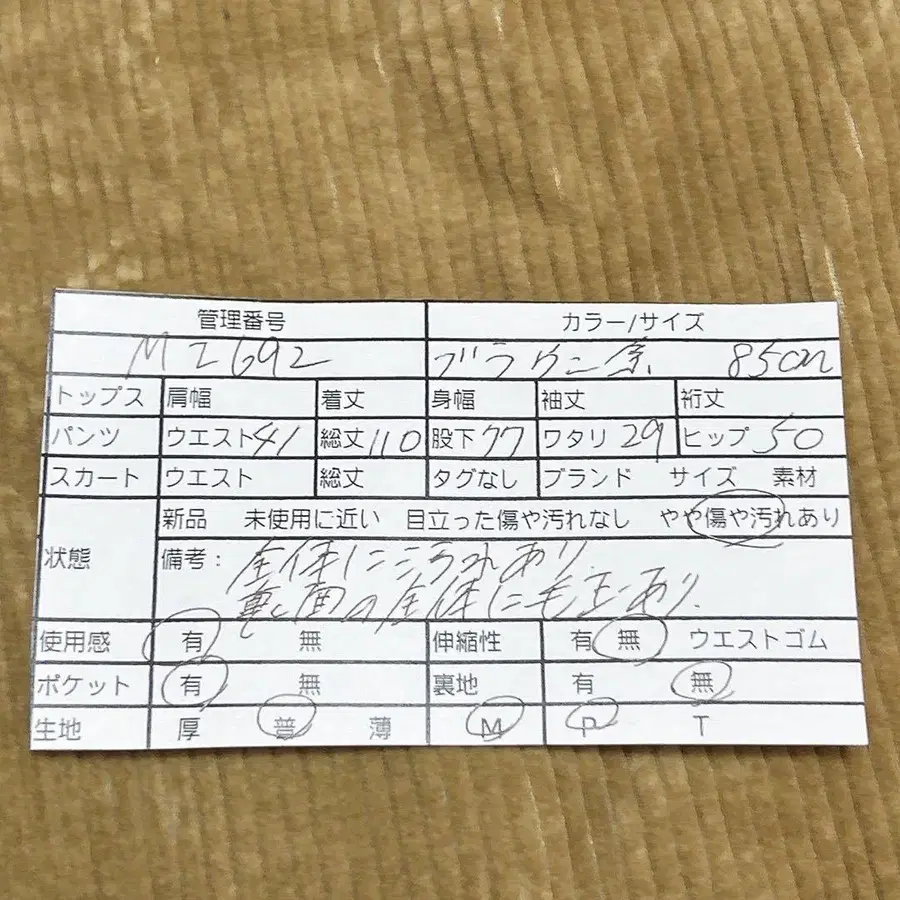 管理番号 カラー/サイズ
MI692 ブラウン系 85cm
トップス 肩幅 着丈 身幅 袖丈 裄丈
パンツ ウエスト 41 総丈 110 股下 77 ワタリ 29 ヒップ 50
スカート ウエスト 総丈 タグなし ブランド サイズ 素材
状態 新品 未使用に近い 目立った傷や汚れなし やや傷や汚れあり
備考: 全体に あり
面の全体に毛 あり.
使用感 有 無 伸縮性 有 無 ウエストゴム
ポケット 有 無 裏地 有 無
生地 厚 普 薄 M P T